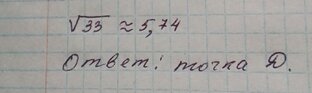 √33 ≈ 5,74
Ответ: точка D.